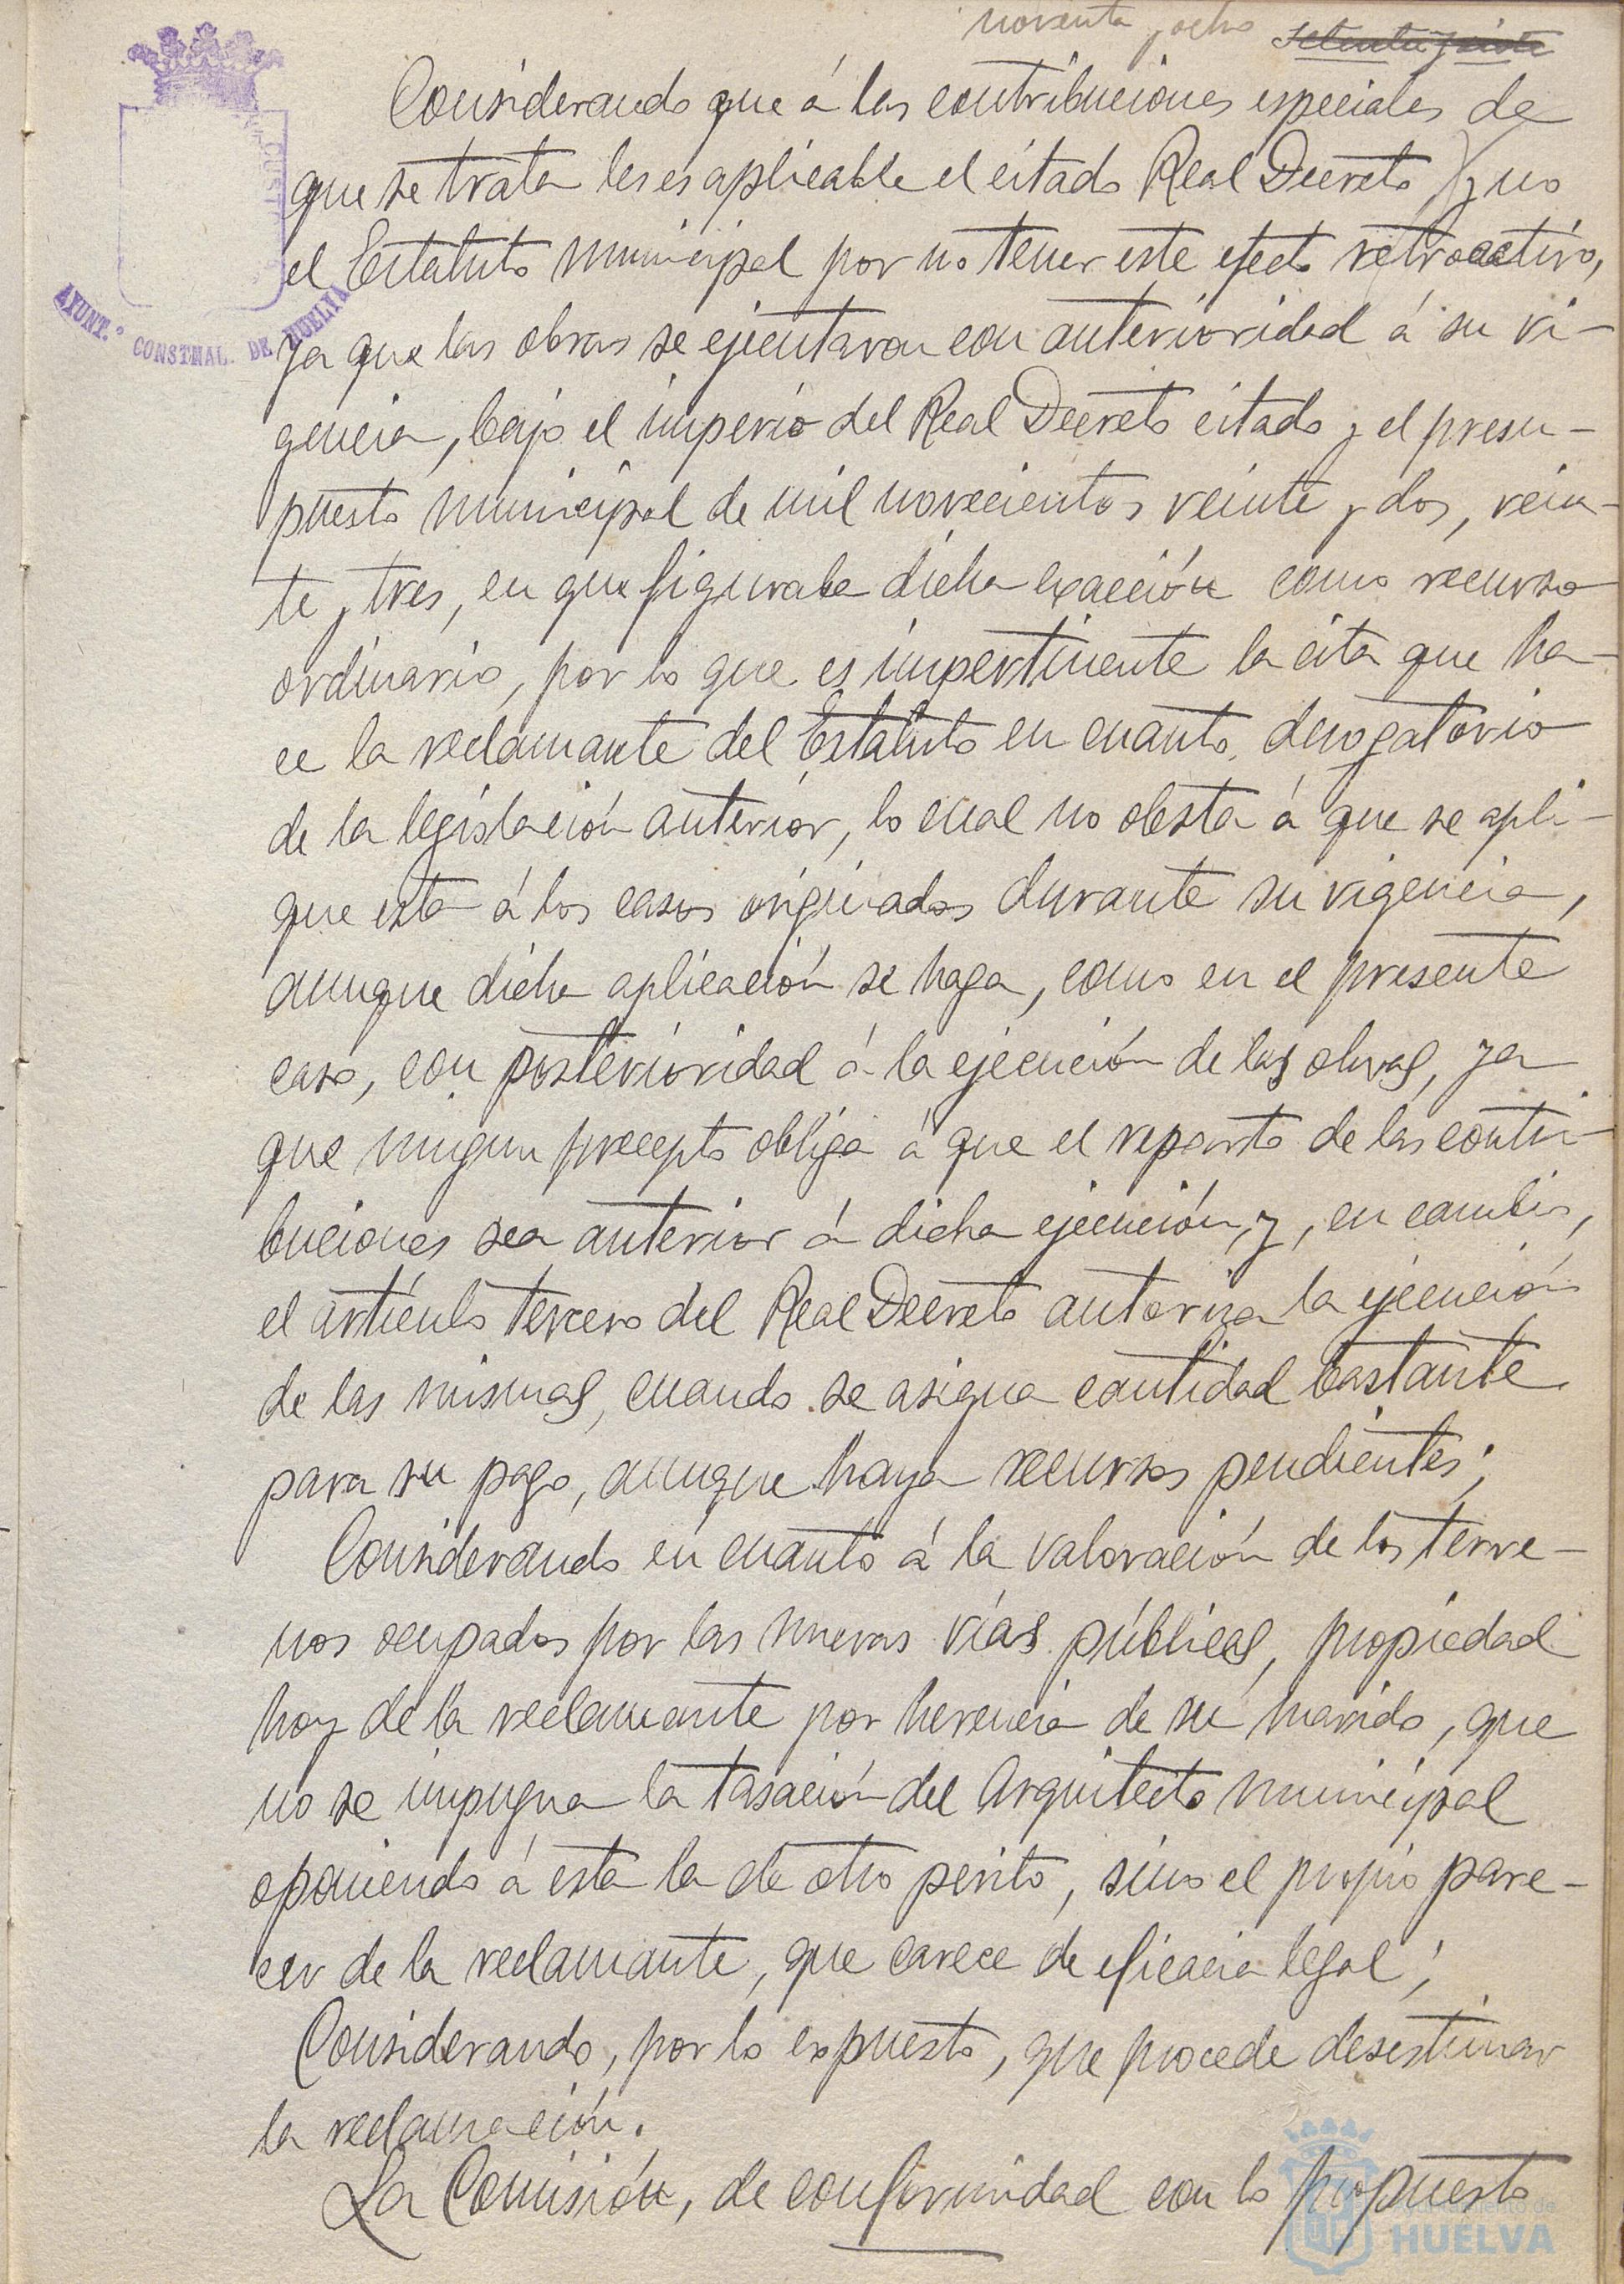 noventa y ocho
Considerando que á las contribuciones especiales de
que se trata les es aplicable el citado Real Decreto y no
el Estatuto municipal por no tener este efecto retroactivo,
ya que las obras se ejecutaron con anterioridad á su vi-
gencia, bajo el imperio del Real Decreto citado y el presu-
puesto municipal de mil novecientos veinte y dos, vein-
te y tres, en que figuraba dicha exacción como recurso
ordinario, por lo que es impertinente la cita que ha-
ce la reclamante del Estatuto en cuanto derogatorio
de la legislación anterior, lo cual no obsta á que se apli-
que esta á los casos originados durante su vigencia,
aunque dicha aplicación se haga, como en el presente
caso, con posterioridad á la ejecución de las obras, ya
que ningun precepto obliga á que el reparto de las contri-
buciones sea anterior á dicha ejecución, y, en cambio,
el artículo tercero del Real Decreto autoriza la ejecución
de las mismas, cuando se asigna cantidad bastante
para su pago, aunque haya recursos pendientes;
Considerando en cuanto á la valoración de los terre-
nos ocupados por las nuevas vías públicas, propiedad
hoy de la reclamante por herencia de su marido, que
no se impugna la tasación del Arquitecto municipal
oponiendo á esta la de otro perito, sino el propio pare-
cer de la reclamante, que carece de eficacia legal;
Considerando, por lo expuesto, que procede desestimar
la reclamación.
La Comisión, de conformidad con lo propuesto
AYUNT.º CONSTNAL. DE HUELVA
Ayuntamiento de
HUELVA